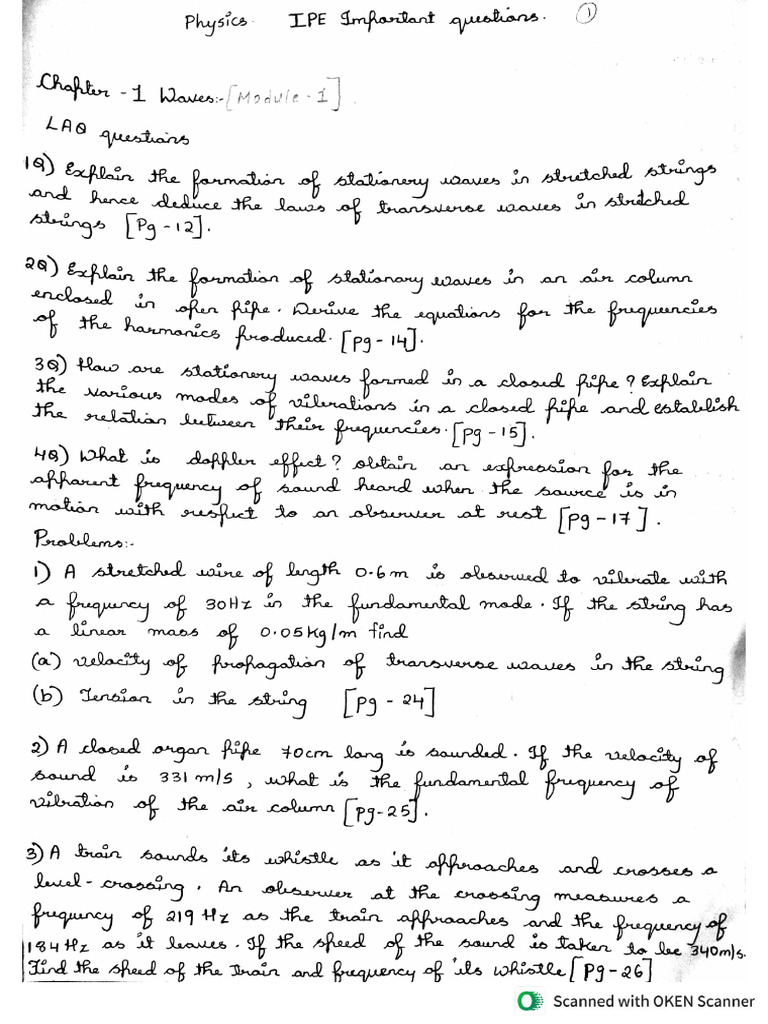 Physics IPE Important questions. 1
Chapter -1 Waves:-[Module-1]
LAQ questions
1Q) Explain the formation of stationery waves in stretched strings
and hence deduce the laws of transverse waves in stretched
strings [Pg-12].
2Q) Explain the formation of stationary waves in an air column
enclosed in open pipe. Derive the equations for the frequencies
of the harmonics produced. [Pg-14].
3Q) How are stationery waves formed in a closed pipe? Explain
the various modes of vibrations in a closed pipe and establish
the relation between their frequencies. [Pg-15].
4Q) What is doppler effect? obtain an expression for the
apparent frequency of sound heard when the source is in
motion with respect to an observer at rest [Pg-17].
Problems:-
1) A stretched wire of length 0.6m is observed to vibrate with
a frequency of 30Hz in the fundamental mode. If the string has
a linear mass of 0.05kg/m find
(a) velocity of propagation of transverse waves in the string
(b) Tension in the string [Pg-24]
2) A closed organ pipe 70cm long is sounded. If the velocity of
sound is 331 m/s, what is the fundamental frequency of
vibration of the air column [Pg-25].
3) A train sounds its whistle as it approaches and crosses a
level-crossing. An observer at the crossing measures a
frequency of 219 Hz as the train approaches and the frequency of
184 Hz as it leaves. If the speed of the sound is taken to be 340m/s.
Find the speed of the train and frequency of its whistle [Pg-26]
Scanned with OKEN Scanner